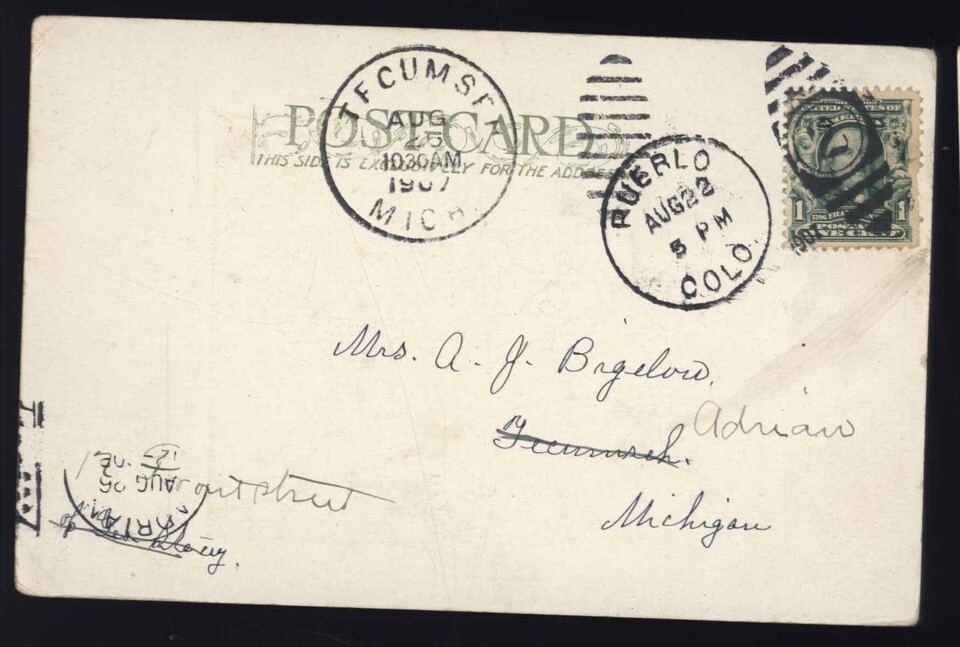 POST CARD
THIS SIDE IS EXCLUSIVELY FOR THE ADDRESS
TECUMSEH
AUG
25
1030AM
1907
MICH.
PUEBLO
AUG 22
5 PM
COLO.
1907
UNITED STATES OF
AMERICA
1 1
POSTAGE
ONE CENT
Mrs. A. J. Bigelow,
Tecumseh. Adrian
Michigan
ADRIAN
AUG 26
front street